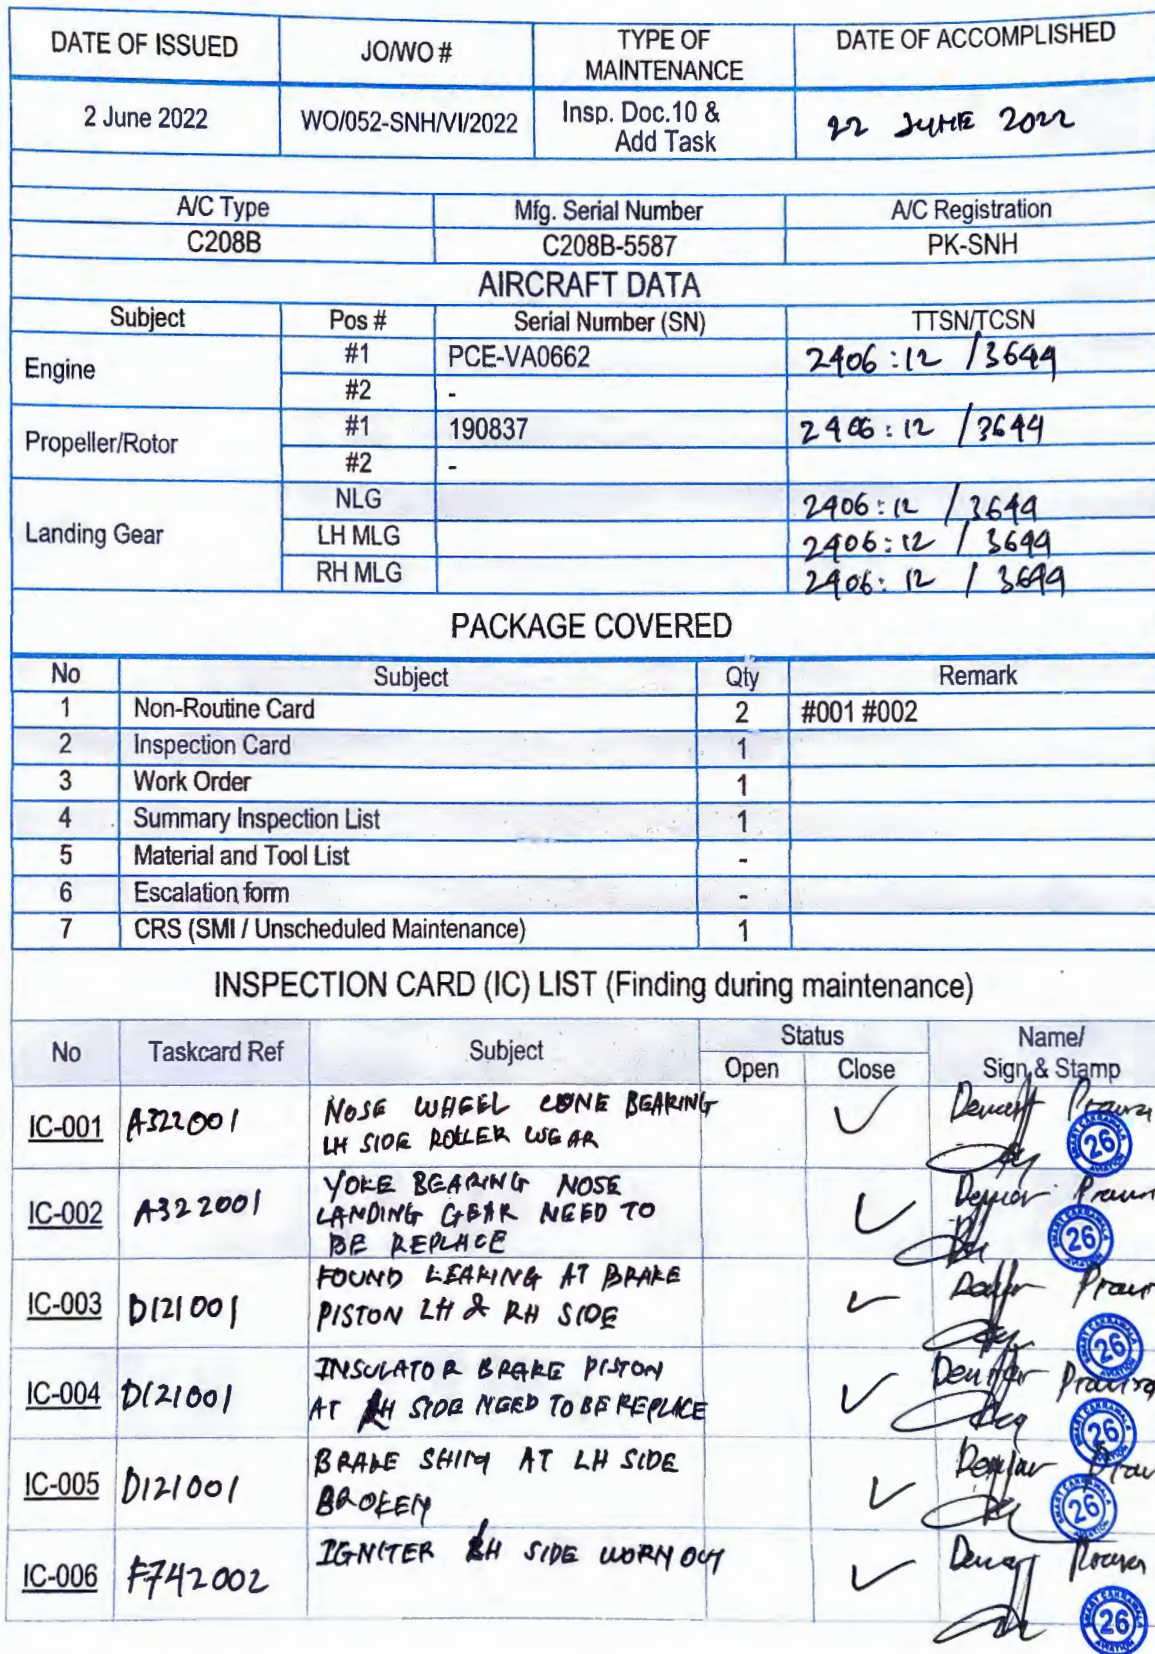 DATE OF ISSUED JO/WO # TYPE OF MAINTENANCE DATE OF ACCOMPLISHED
2 June 2022 WO/052-SNH/VI/2022 Insp. Doc.10 & Add Task 22 JUNE 2022
A/C Type Mfg. Serial Number A/C Registration
C208B C208B-5587 PK-SNH
AIRCRAFT DATA
Subject Pos # Serial Number (SN) TTSN/TCSN
Engine #1 PCE-VA0662 2406:12 / 3644
#2 -
Propeller/Rotor #1 190837 2406:12 / 3644
#2 -
Landing Gear NLG 2406:12 / 3644
LH MLG 2406:12 / 3644
RH MLG 2406:12 / 3644
PACKAGE COVERED
No Subject Qty Remark
1 Non-Routine Card 2 #001 #002
2 Inspection Card 1
3 Work Order 1
4 Summary Inspection List 1
5 Material and Tool List -
6 Escalation form -
7 CRS (SMI / Unscheduled Maintenance) 1
INSPECTION CARD (IC) LIST (Finding during maintenance)
No Taskcard Ref Subject Status Name/
Open Close Sign & Stamp
IC-001 A322001 NOSE WHEEL CONE BEARING
LH SIDE ROLLER WEAR
SMART CAKRAWALA AVIATION 26
IC-002 A322001 YOKE BEARING NOSE
LANDING GEAR NEED TO
BE REPLACE
SMART CAKRAWALA AVIATION 26
IC-003 D121001 FOUND LEAKING AT BRAKE
PISTON LH & RH SIDE
SMART CAKRAWALA AVIATION 26
IC-004 D121001 INSULATOR BRAKE PISTON
AT H SIDE NEED TO BE REPLACE
SMART CAKRAWALA AVIATION 26
IC-005 D121001 BRAKE SHIM AT LH SIDE
BROKEN
SMART CAKRAWALA AVIATION 26
IC-006 F742002 IGNITER H SIDE WORN OUT
SMART CAKRAWALA AVIATION 26